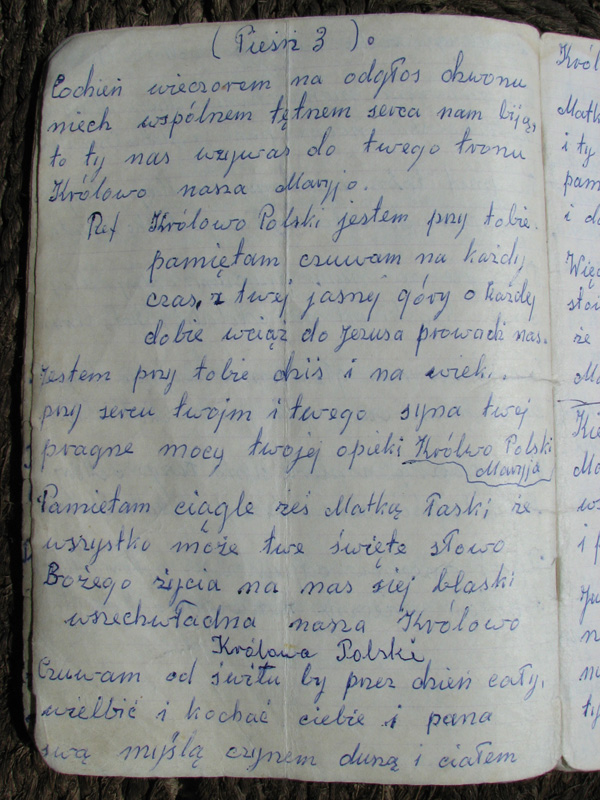 ( Pieśń 3 ).
Codzień wieczorem na odgłos dzwonu
niech wspólnem tętnem serca nam biją,
to ty nas wzywas do twego tronu
Królowo nasza Maryjo.
Ref Królowo Polski jestem przy tobie.
pamiętam czuwam na każdy
czas, z twej jasnej góry o każdej
dobie wciąż do Jezusa prowadź nas.
Jestem przy tobie dziś i na wieki.
przy sercu twojm i twego syna twej
pragne mocy twojej opieki Królwo Polski
Maryja
Pamiętam ciągle żeś Matką Łaski że
wszystko może twe święte słowo
Bożego życia na nas siej blaski
wszechwładna nasza Królowo
Królowa Polski
Czuwam od świtu by przez dzień cały,
wielbić i kochać ciebie i pana
swą myślą czynem duszą i ciałem
Król
Matk
i ty
pam
i do
Więc
stoi
że
Ma
Kie
Ma
i f
ty